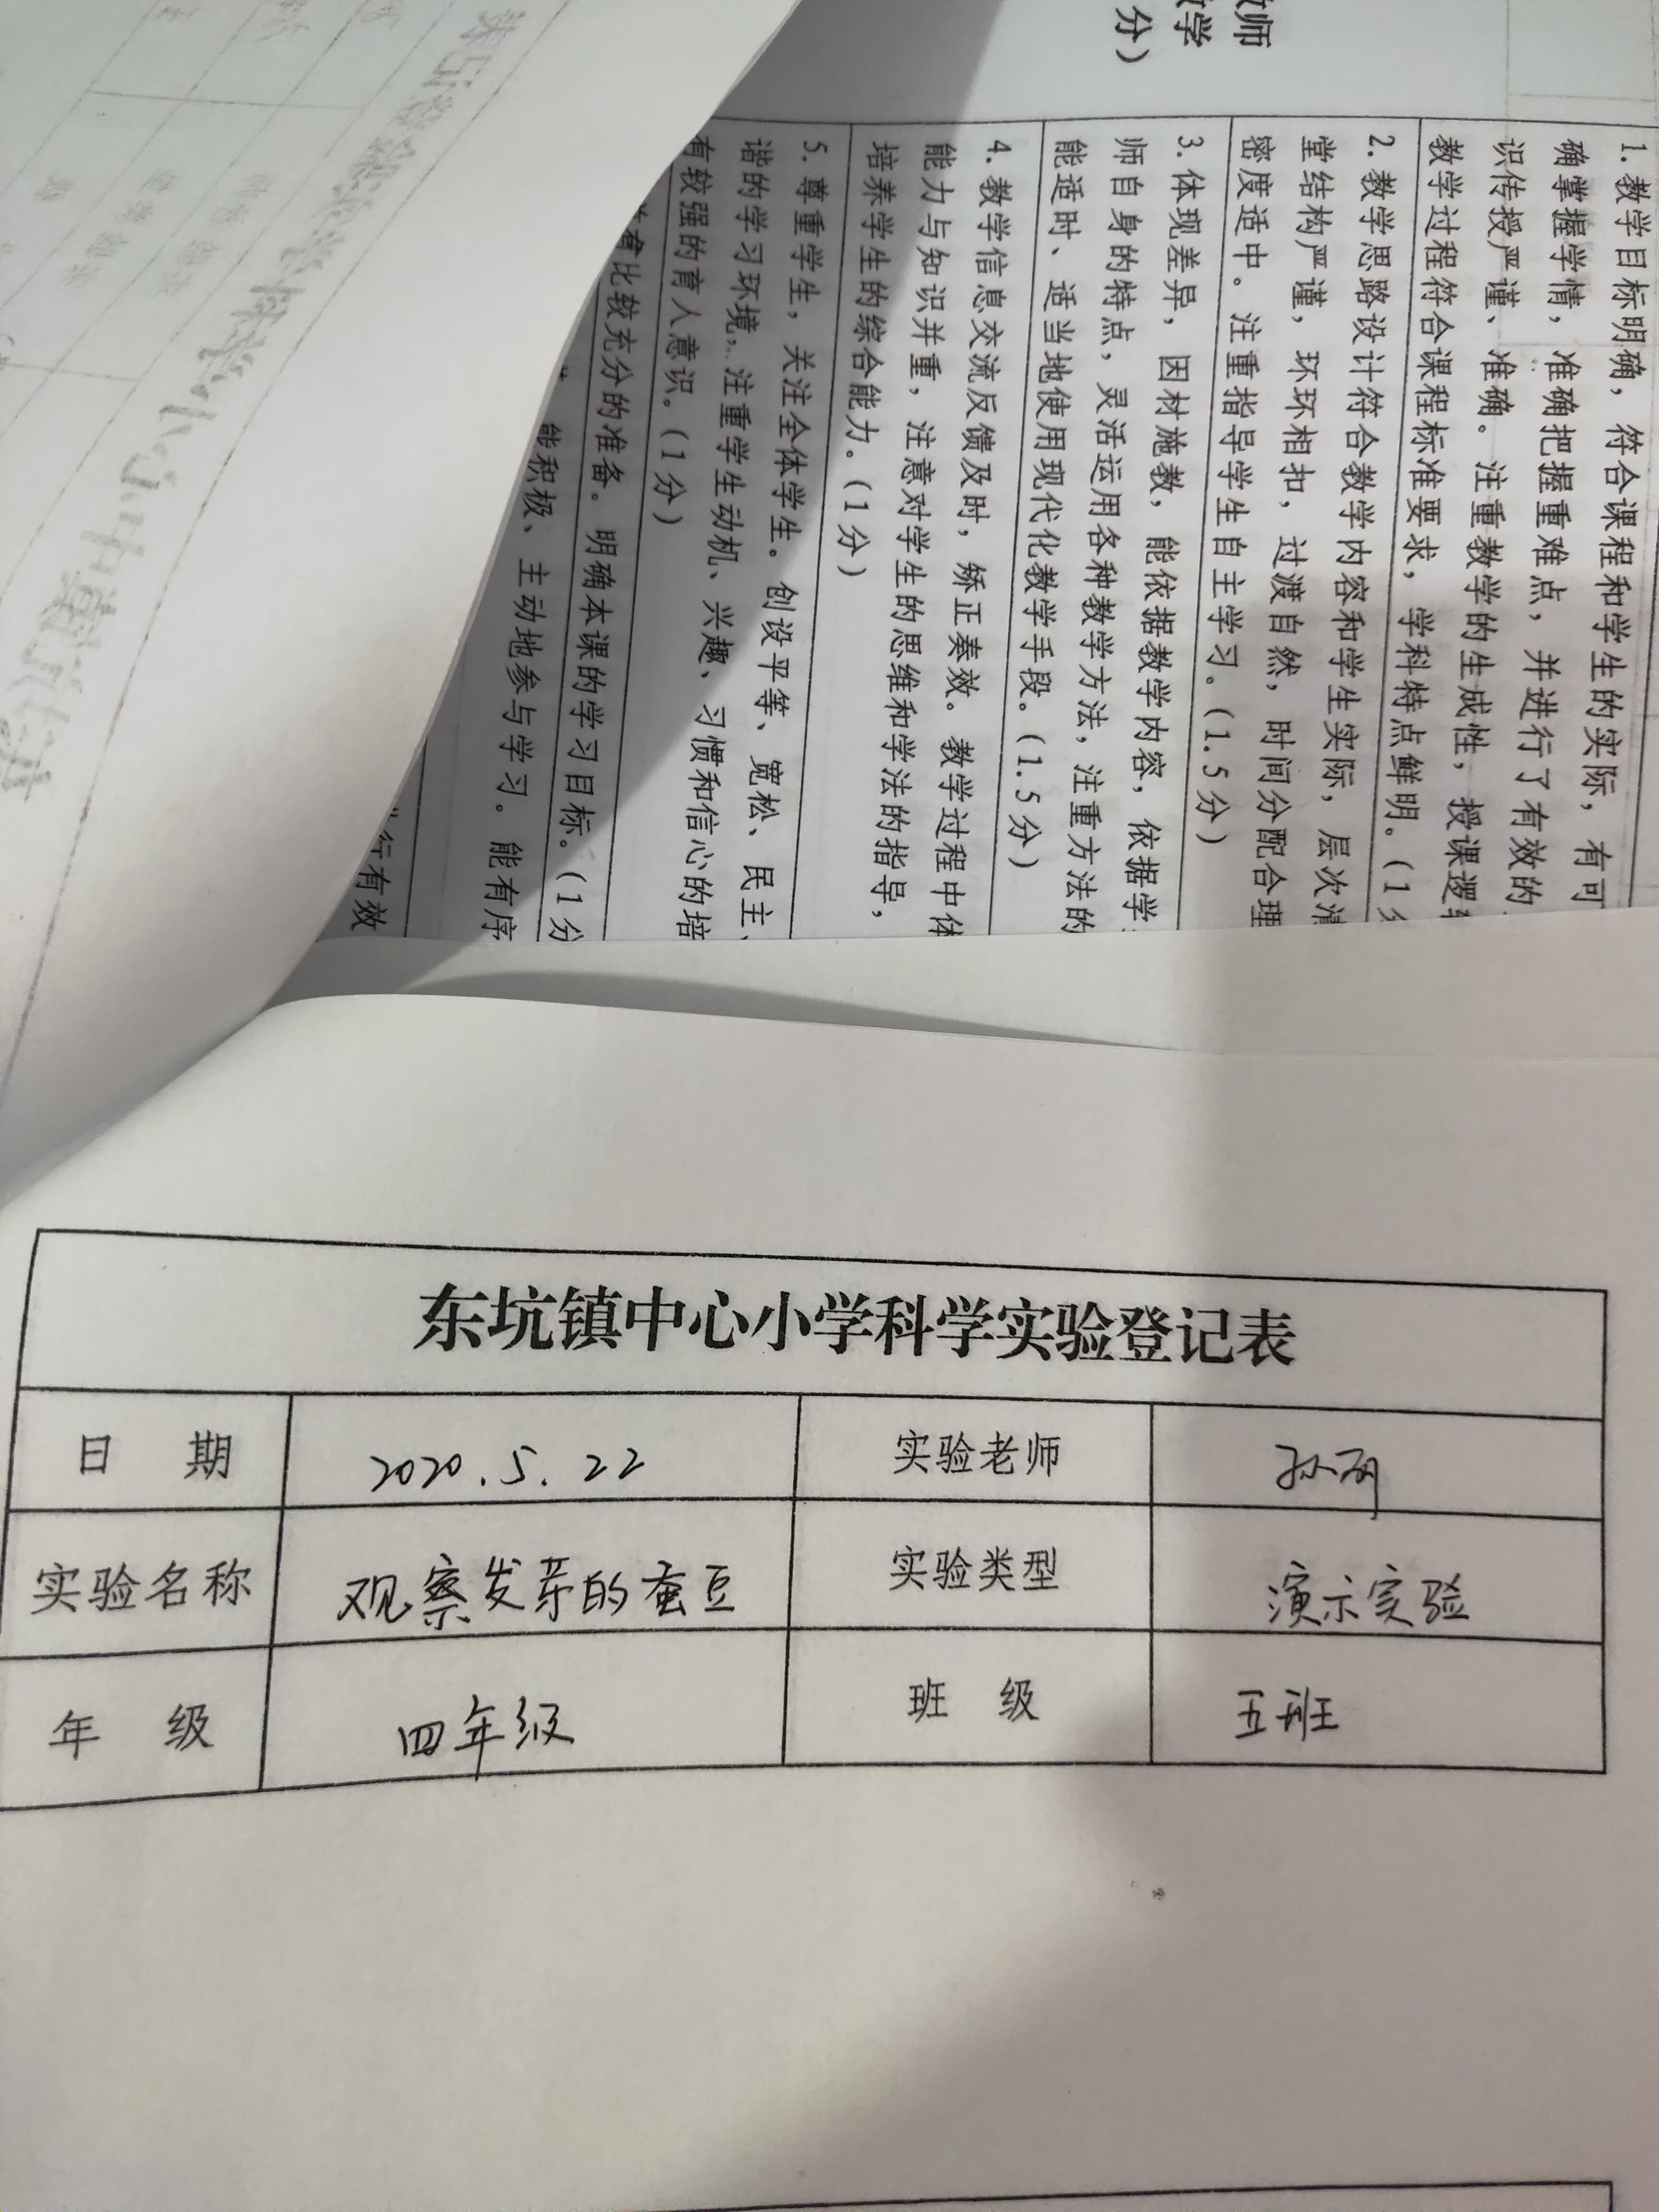 教师
教学
分）
1.教学目标明确，符合课程和学生的实际，有可
确掌握学情，准确把握重难点，并进行了有效的
识传授严谨、准确。注重教学的生成性，授课逻辑
教学过程符合课程标准要求，学科特点鲜明。（1分
2.教学思路设计符合教学内容和学生实际，层次清
堂结构严谨，环环相扣，过渡自然，时间分配合理
密度适中。注重指导学生自主学习。（1.5分）
3.体现差异，因材施教，能依据教学内容，依据学
师自身的特点，灵活运用各种教学方法，注重方法的
能适时、适当地使用现代化教学手段。（1.5分）
4.教学信息交流反馈及时，矫正奏效。教学过程中体
能力与知识并重，注意对学生的思维和学法的指导，
培养学生的综合能力。（1分）
5.尊重学生，关注全体学生。创设平等、宽松、民主、
谐的学习环境，注重学生动机、兴趣、习惯和信心的培
有较强的育人意识。（1分）
有比较充分的准备。明确本课的学习目标。（1分
能积极、主动地参与学习。能有序
行有效
东坑镇中心小学科学实验登记表
日 期 2020.5.22 实验老师
实验名称 观察发芽的蚕豆 实验类型 演示实验
年 级 四年级 班 级 五班